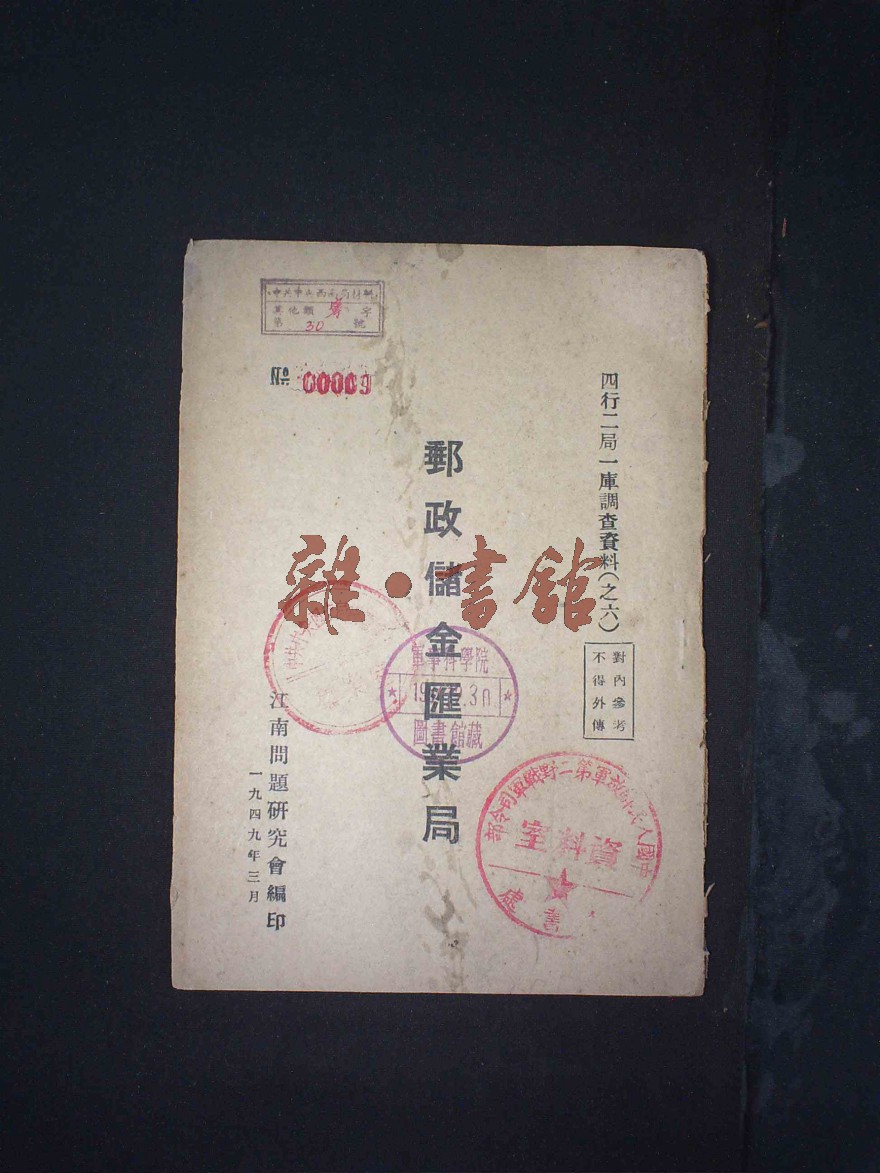 四行二局一庫調查資料（之六）
對內參考
不得外傳
郵政儲金匯業局
江南問題研究會編印
一九四九年三月
№ 00009
其他類 字
第 30 號
雜·書館
軍事科學院
圖書館藏
中國人民解放軍第二野戰軍司令部
資料室
書處